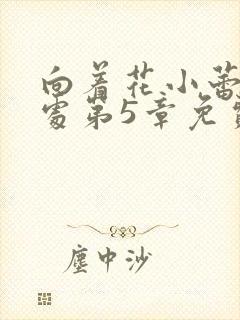 向着花小蕾
处第5章免费
塵中沙